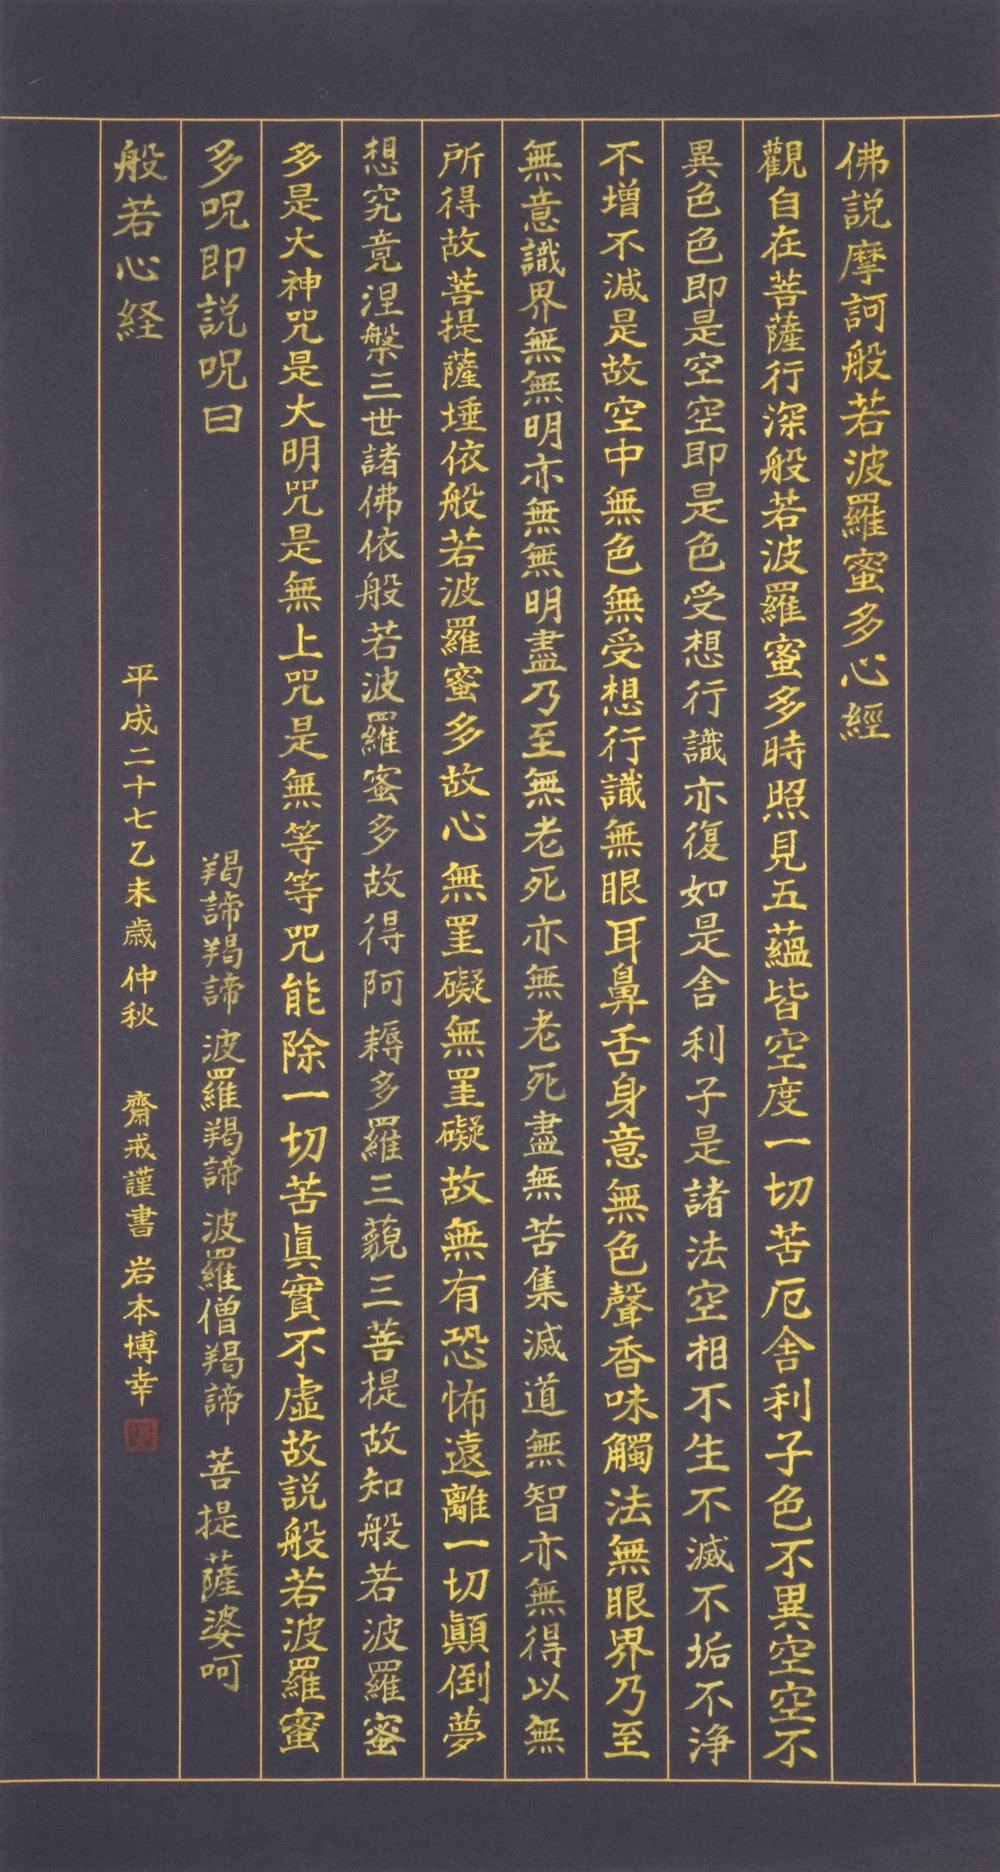 佛説摩訶般若波羅蜜多心經
觀自在菩薩行深般若波羅蜜多時照見五蘊皆空度一切苦厄舎利子色不異空空不
異色色即是空空即是色受想行識亦復如是舎利子是諸法空相不生不滅不垢不浄
不增不減是故空中無色無受想行識無眼耳鼻舌身意無色聲香味觸法無眼界乃至
無意識界無無明亦無無明盡乃至無老死亦無老死盡無苦集滅道無智亦無得以無
所得故菩提薩埵依般若波羅蜜多故心無罣礙無罣礙故無有恐怖遠離一切顛倒夢
想究竟涅槃三世諸佛依般若波羅蜜多故得阿耨多羅三藐三菩提故知般若波羅蜜
多是大神咒是大明咒是無上咒是無等等咒能除一切苦眞實不虚故説般若波羅蜜
多呪即説呪曰
羯諦羯諦 波羅羯諦 波羅僧羯諦 菩提薩婆呵
般若心経
平成二十七乙未歳仲秋 齋戒謹書 岩本博幸